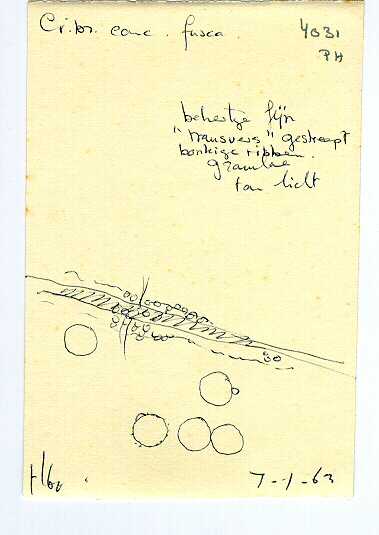 Cribr. conc. fusca.
4031
PH
beheertje fijn
"transvers" gestreept
bonkige ribben.
granulae
ton licht
7-1-63